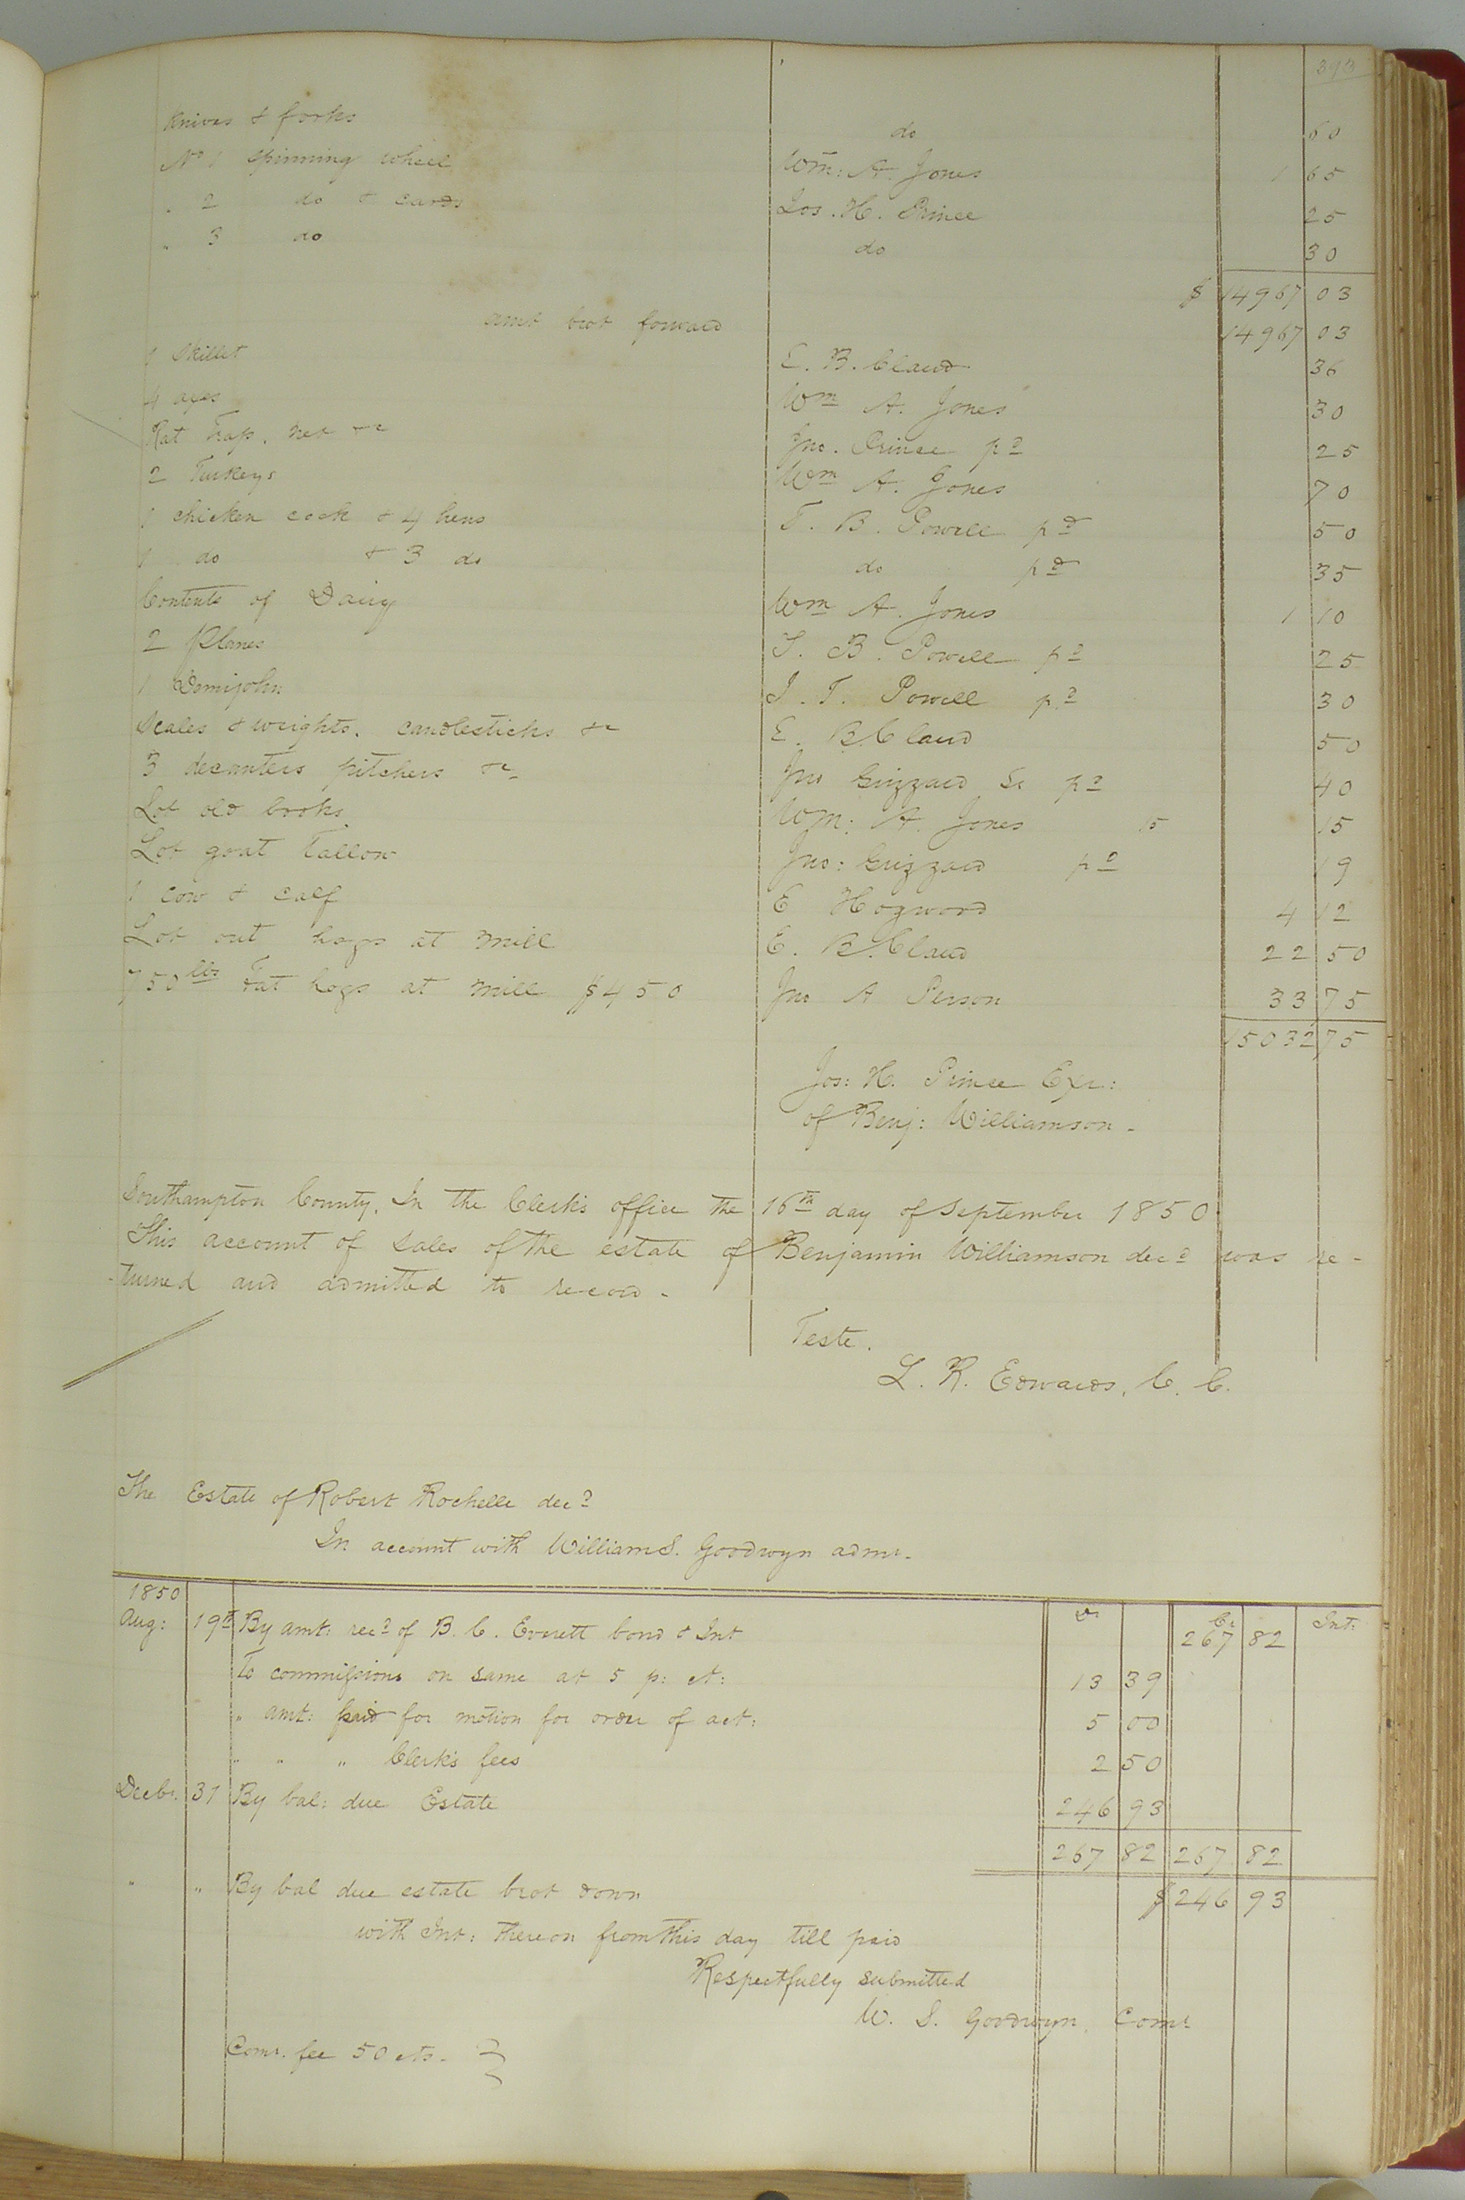 393
Knives & forks do 60
No 1 Spinning wheel Wm: A. Jones 1 65
" 2 do & cards Jos. H. Prince 25
" 3 do do 30
$ 14967 03
amt brot forward 14967 03
1 Skillet E. B. Claud 36
4 axes Wm A. Jones 30
Rat Trap, net &c Jno. Prince pd 25
2 Turkeys Wm A. Jones 70
1 chicken cock & 4 hens T. B. Powell pd 50
1 do & 3 do do pd 35
Contents of Dairy Wm A. Jones 1 10
2 Planes T. B. Powell pd 25
1 Demijohn J. T. Powell pd 30
Scales & weights, candlesticks &c E. B. Claud 50
3 decanters pitchers &c Jno Grizzard Sr pd 40
Lot old books Wm: A. Jones 15 15
Lot goat Tallow Jno: Grizzard pd 19
1 cow & calf E Hogwood 4 12
Lot out hogs at Mill E. B. Claud 22 50
750 lbs Fat hogs at Mill $4 50 Jno A Person 33 75
15032 75
Jos: H. Prince Exr:
of Benj: Williamson.
Southampton County. In the Clerk's office the 16th day of September 1850
This account of sales of the estate of Benjamin Williamson decd was re-
-turned and admitted to record.
Teste.
L. R. Edwards, C. C.
The Estate of Robert Rochelle decd
In account with William S. Goodwyn admr.
1850 Dr Cr Int:
Aug: 19th By amt: recd of B. C. Everett bond & Int 267 82
To commissions on same at 5 p: ct: 13 39
" amt: paid for motion for order of act: 5 00
" " " Clerk's fees 2 50
Decbr. 31 By bal: due Estate 246 93
267 82 267 82
" " By bal due estate brot down $ 246 93
with Int: thereon from this day till paid
Respectfully submitted
W. S. Goodwyn, Comr
Comr. fee 50 cts.